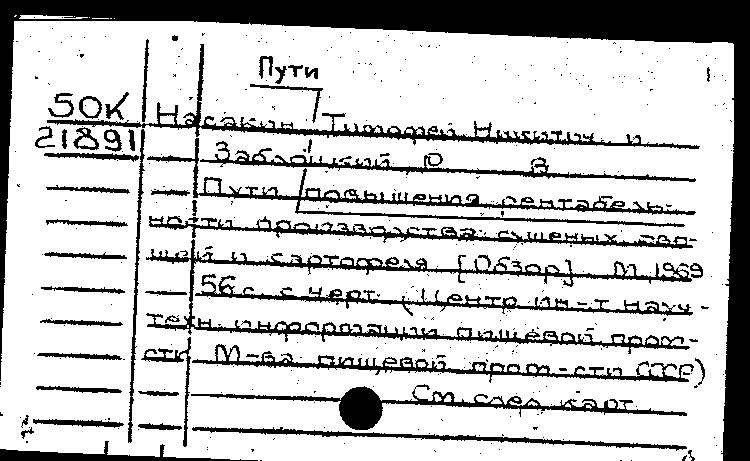 Пути
50К Насакин Тимофей Никитич и
21891 Заблоцкий Ю В
Пути повышения рентабель-
ности производства сушеных ово-
щей и картофеля [Обзор] М 1969
56 с. с черт (Центр ин-т науч-
техн. информации пищевой пром-
сти М-ва пищевой пром-сти СССР)
См след карт